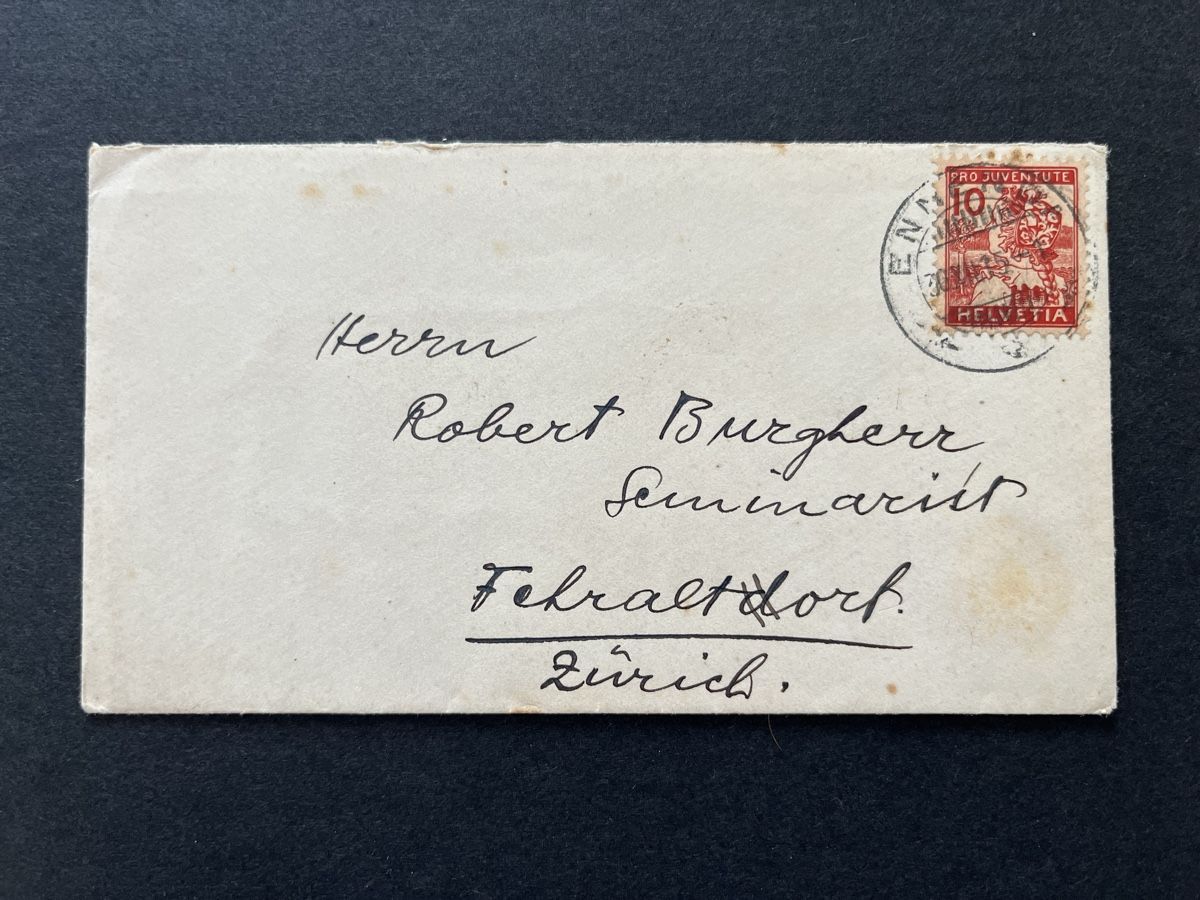 PRO JUVENTUTE
10
HELVETIA
Herrn
Robert Burgherr
Seminarist
Fehraltdorf.
Zürich.